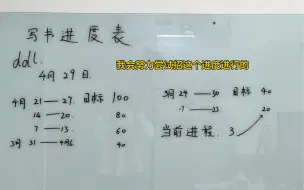 写书进度表
ddl.
4月29日
我会努力尝试招这个进度进行的
4月 21 — 29. 目标 100
14 — 20. 80
7 — 13. 60
3月 31 — 4月6 40
3月 24 — 30 目标 40
— 23. 20
当前进程. 3